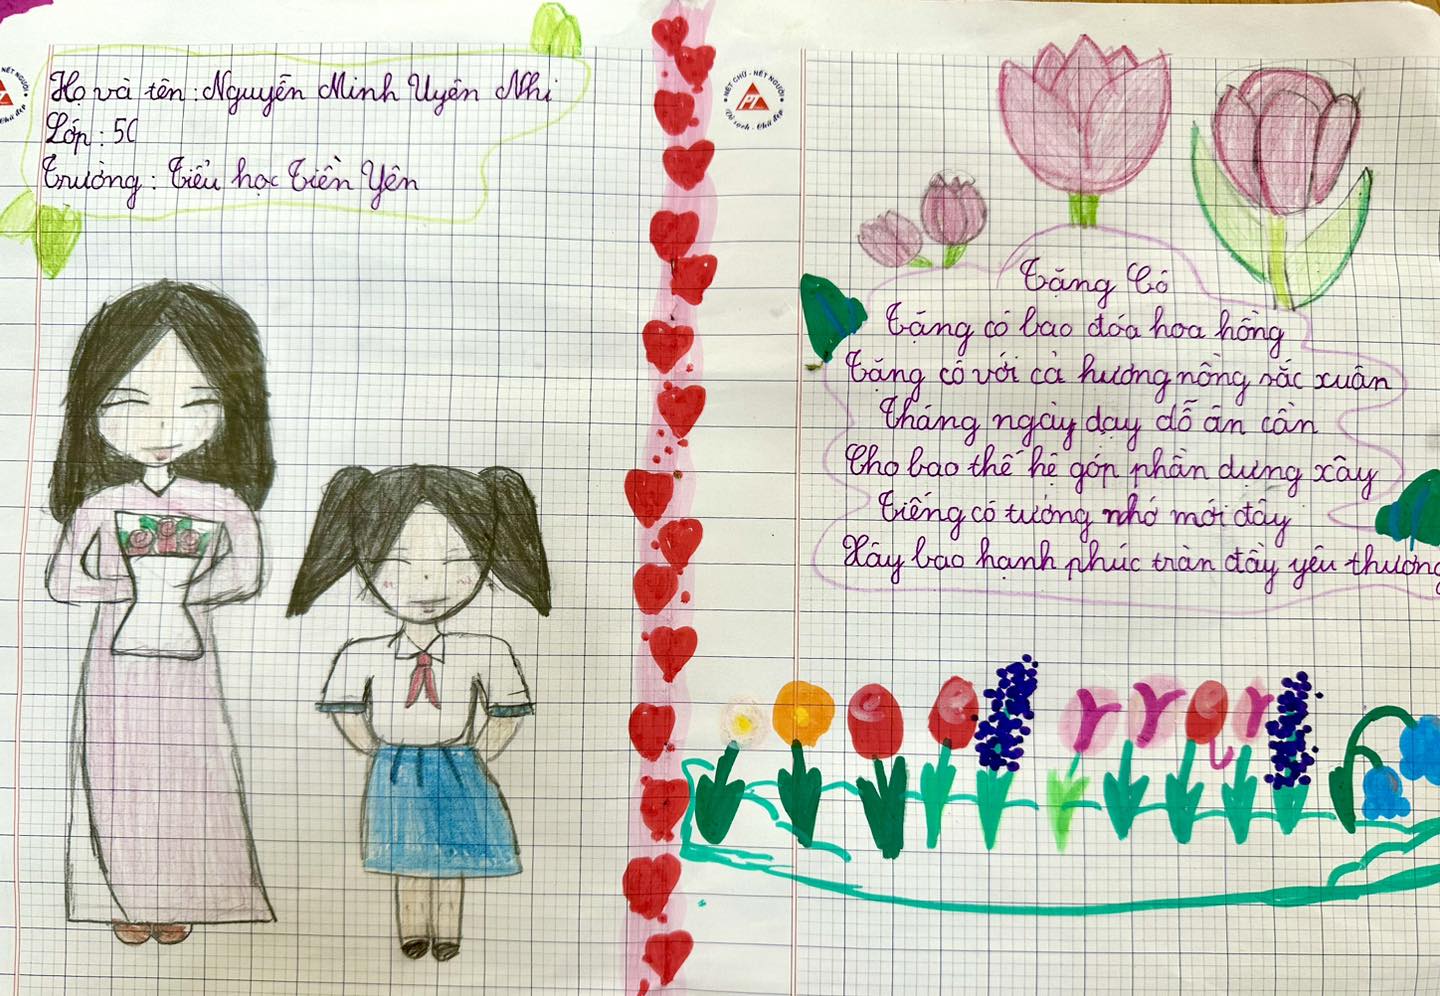 Họ và tên: Nguyễn Minh Uyên Nhi
Lớp: 5C
Trường: Tiểu học Tiền Yên
NÉT CHỮ - NẾT NGƯỜI
PT
Vở sạch - Chữ đẹp
Tặng Cô
Tặng cô bao đóa hoa hồng
Tặng cô với cả hương nồng sắc xuân
Tháng ngày dạy dỗ ân cần
Cho bao thế hệ góp phần dựng xây
Tiếng cô tưởng nhớ mới đây
Xây bao hạnh phúc tràn đầy yêu thương